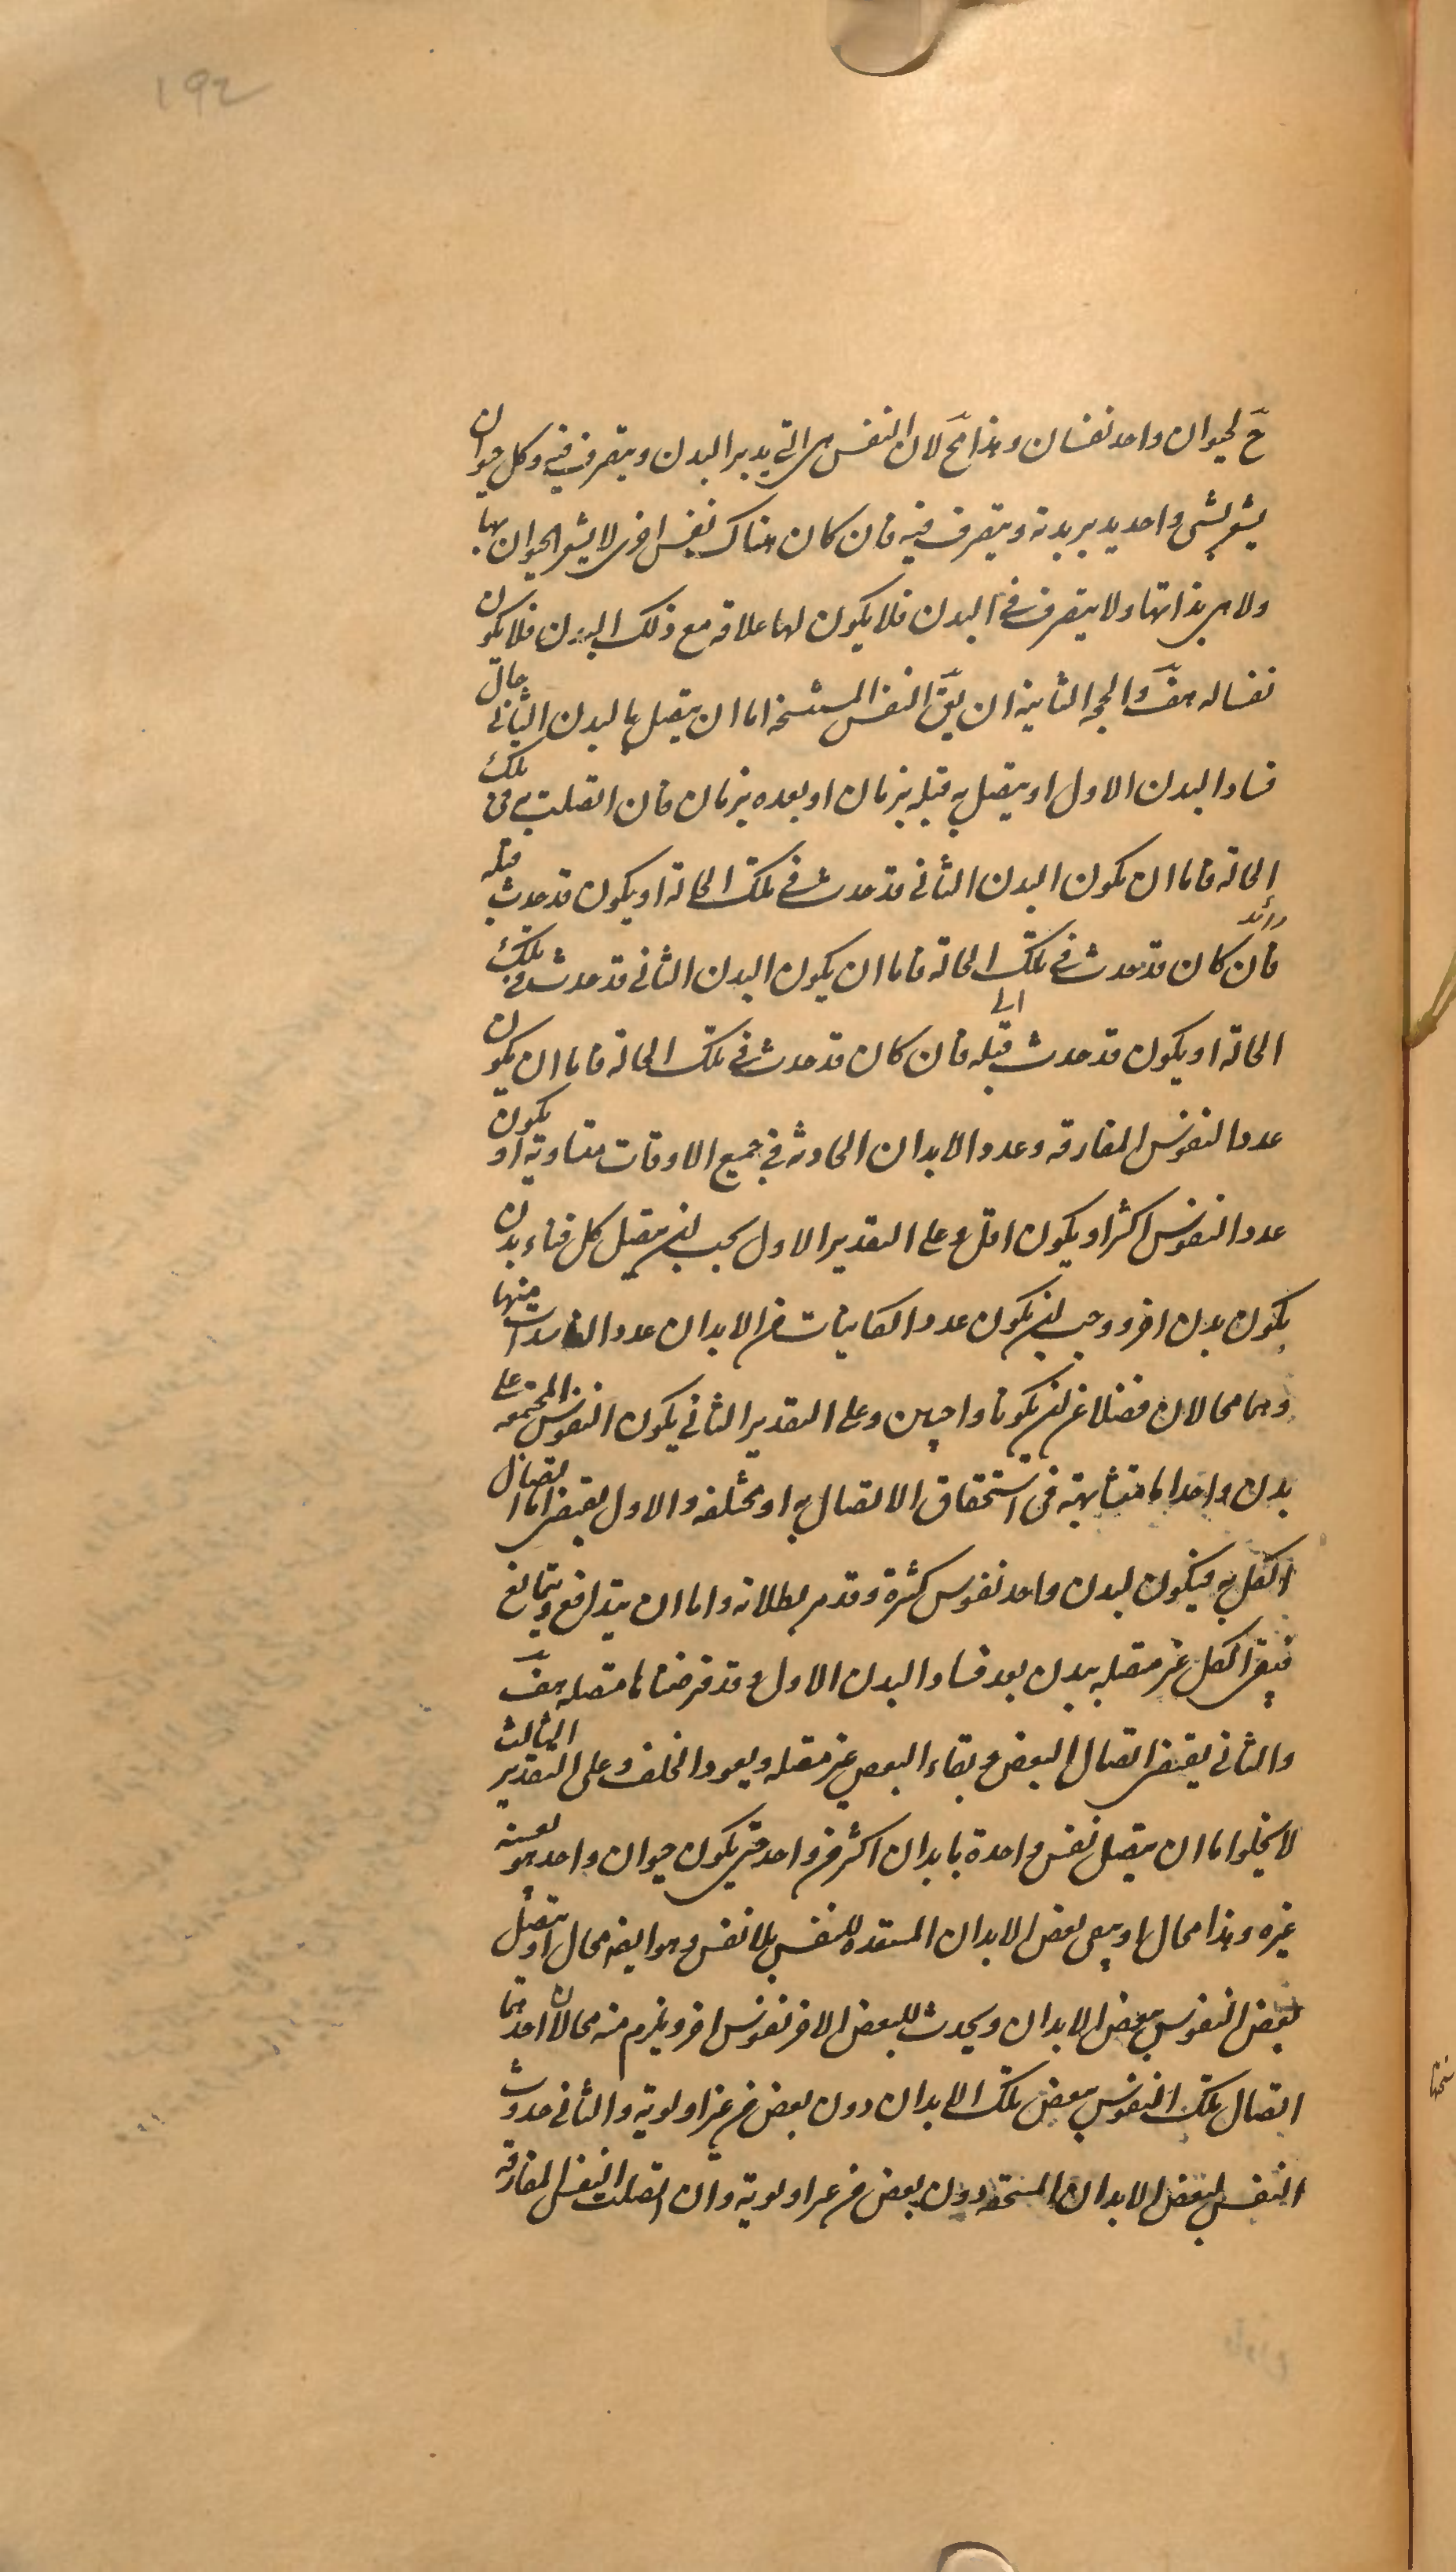 ١٩٢
حَ لحيوان واحد نفسان وهذا مَح لان النفس هى التى يدبر البدن ويتصرف فيه وكل حيوان
يشعر بشى واحد يدبر بدنه ويتصرف فيه فان كان هناك نفس اخرى لا يشعر الحيوان بها
ولا هى بذاتها ولا يتصرف فى البدن فلا يكون لها علاقه مع ذلك البدن فلا يكون
نفسا له هفَ والحجه الثانية ان يقَ النفس المستنسخه اما ان يتصل بالبدن الثانى حال
فساد البدن الاول او يتصل به قبله بزمان او بعده بزمان فان اتصلت به فى تلك
الحالة فاما ان يكون البدن الثانى قد حدث فى تلك الحالة او يكون قد حدث قبله
زائد
فان كان قد حدث فى تلك الحالة فاما ان يكون البدن الثانى قد حدث فى تلك
الى
الحالة او يكون قد حدث قبله فان كان قد حدث فى تلك الحالة فاما ان يكون
عدد النفوس المفارقه وعدد الابدان الحادثه فى جميع الاوقات متساوية او يكون
عدد النفوس اكثر او يكون اقل وعلى التقدير الاول يجب ان يتصل كل فناء بدن
بكون بدن اخر ووجب ان يكون عدد الكاينات من الابدان عدد الفاسدات منها
وهما محالان فضلا عن ان يكونا واجبين وعلى التقدير الثانى يكون النفوس المجتمعه على
بدن واحد اما متشابهة فى استحقاق الاتصال به او مختلفه والاول يقتضى اما اتصال
الكل به فيكون لبدن واحد نفوس كثيرة وقد مر بطلانه واما ان يتدافع ويتمانع
فيبقى الكل غير متصله ببدن بعد فساد البدن الاول وقد فرضناها متصله هفَ
والثانى يقتضى اتصال البعض وبقاء البعض غير متصله ويعود الخلف وعلى التقدير الثالث
لا يخلوا اما ان يتصل نفس واحدة بابدان اكثر من واحد حتى يكون حيوان واحد هو بعينه
غيره وهذا محال او يبقى بعض الابدان المستعده للنفس بلا نفس وهو ايضا محال او يتصل
بعض النفوس ببعض الابدان ويحدث للبعض الاخر نفوس اخر ويلزم منه محالان احدهما
اتصال تلك النفوس ببعض تلك الابدان دون بعض من غير اولوية والثانى حدوث
النفس لبعض الابدان المستحقه دون بعض من غير اولوية وان اتصلت النفس المفارقه